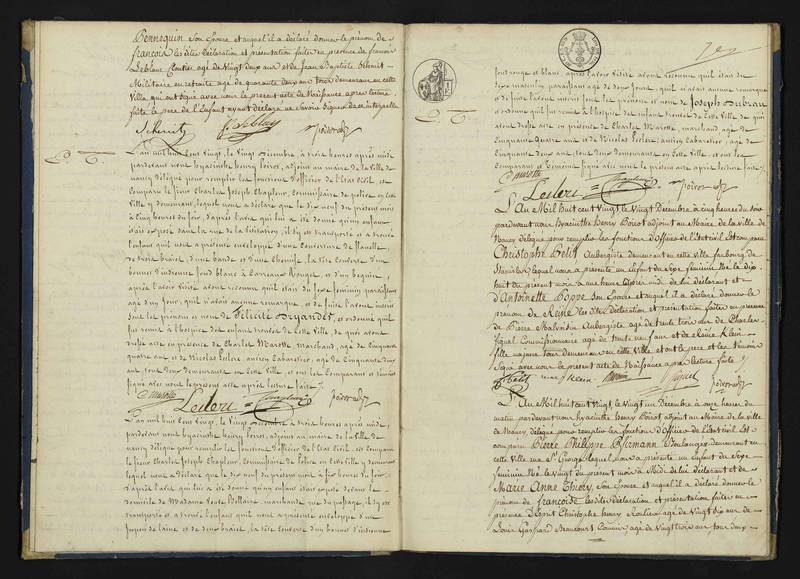 Bennequin son Epouse et auquel il a déclaré donner le prénom de
françois les dites déclaration et présentation faites en présence de francois
Leblanc Rentier agé de vingt deux ans et de Jean Baptiste
Militaire en retraite agé de quarante deux ans tous demeurant en cette
Ville qui ont signé avec nous le présent acte de Naissance après lecture
faite le père de l'Enfant ayant déclaré ne savoir signer de ce interpellé
L'an mil huit cent vingt, le vingt Décembre, à trois heures après midi
pardevant nous hyacinthe henry Poirot, adjoint au maire de la ville de
nancy délégué pour remplir les fonctions d'officier de l'Etat Civil est
Comparu le sieur Charles Joseph Chapleur, Commissaire de police en cette
ville y demeurant, lequel nous a déclaré que le dix neuf du présent mois
à Cinq heures du soir, d'après l'avis qui lui a été donné qu'un enfant
était exposé dans la rue de la Visitation, il s'y est transporté et a trouvé
l'enfant qu'il nous a présenté enveloppé d'une Couverture de flanelle,
de trois braies, d'une bande et d'une Chemise, la tête couverte d'un
bonnet d'indienne fond blanc à Carreaux Rouges, et d'un beguin,
après l'avoir visité avons reconnu qu'il était du sexe féminin paraissant
agé d'un jour, qu'il n'avait aucune remarque, et de suite l'avons inscrit
sous les prénom et nom de Félicité et ordonné qu'il
fut remis à l'hospice des enfants trouvés de cette ville, de quoi avons
dressé acte en présence de Charles Marotte, marchand, agé de Cinquante
quatre ans et de Nicolas Leclerc, ancien Cabaretier, agé de Cinquante deux
ans, tous deux demeurants en cette ville, et ont les Comparant et témoins
signé avec nous le présent acte après lecture faite
Marotte Leclerc Poirot
L'an mil huit cent vingt, le vingt Décembre à trois heures après midi,
pardevant nous hyacinthe henry Poirot, adjoint au maire de la ville de
nancy délégué pour remplir les fonctions d'officier de l'Etat Civil, est comparu
le sieur Charles Joseph Chapleur, Commissaire de police en cette ville y demeurant
lequel nous a déclaré que le dix neuf du présent mois à huit heures du soir,
d'après l'avis qui lui a été donné qu'un enfant était exposé devant le
domicile de Madame Veuve marchande rue du passage, il s'y est
transporté et a trouvé l'enfant qu'il nous a présenté enveloppé d'un
jupon de laine et de deux braies, la tête couverte d'un bonnet d'indienne
fond rouge et blanc, après l'avoir visité avons reconnu qu'il était du
sexe masculin paraissant agé de deux jours, qu'il n'avait aucune remarque
et de suite l'avons inscrit sous les prénom et nom de Joseph
et ordonné qu'il fut remis à l'hospice des enfants trouvés de cette ville de quoi
avons dressé acte en présence de Charles Marotte, marchand, agé de
Cinquante quatre ans et de Nicolas Leclerc, ancien Cabaretier, agé de
Cinquante deux ans, tous deux demeurants en cette Ville, et ont les
Comparant et Témoins signé avec nous le présent acte après lecture faite
Marotte Leclerc Poirot
L'An Mil huit cent vingt le vingt Décembre à cinq heures du soir
pardevant nous Hyacinthe Henry Poirot adjoint au Maire de la ville de
Nancy délégué pour remplir les fonctions d'Officier de l'Etat civil Est comparu
Christophe Pétit Aubergiste demeurant en cette ville faubourg de
Stanislas lequel nous a présenté un Enfant du Sexe féminin Né le dix
huit du présent mois à une heure après midi de lui déclarant et
d'Antoinette Poppe son Epouse et auquel il a déclaré donner le
prénom de Reine les dites déclaration et présentation faites en présence
de Pierre Malvintin Aubergiste agé de trente trois ans de Charles
Commissionnaire agé de trente neuf ans et de Reine Klein
fille majeure tous demeurant en cette Ville et ont le père et les témoins
Signé avec nous le présent acte de Naissance après lecture faite
Pétit reine Klein Poirot
L'An Mil huit cent vingt, le vingt un Décembre à onze heures du
matin pardevant nous Hyacinthe Henry Poirot adjoint au Maire de la ville
de Nancy, délégué pour remplir les fonctions d'Officier de l'Etat Civil Est
comparu Pierre Philippe Boulanger demeurant en
cette Ville rue St George lequel nous a présenté un Enfant du Sexe
féminin Né le vingt du présent mois à Midi de lui déclarant et de
Marie Anne Thiéry, son Epouse et auquel il a déclaré donner le
prénom de françoise les dites déclaration et présentation faites en
présence d'Esprit Christophe henry agé de vingt six ans et de
Louis Gaspard Beaucourt agé de vingt trois ans tous deux